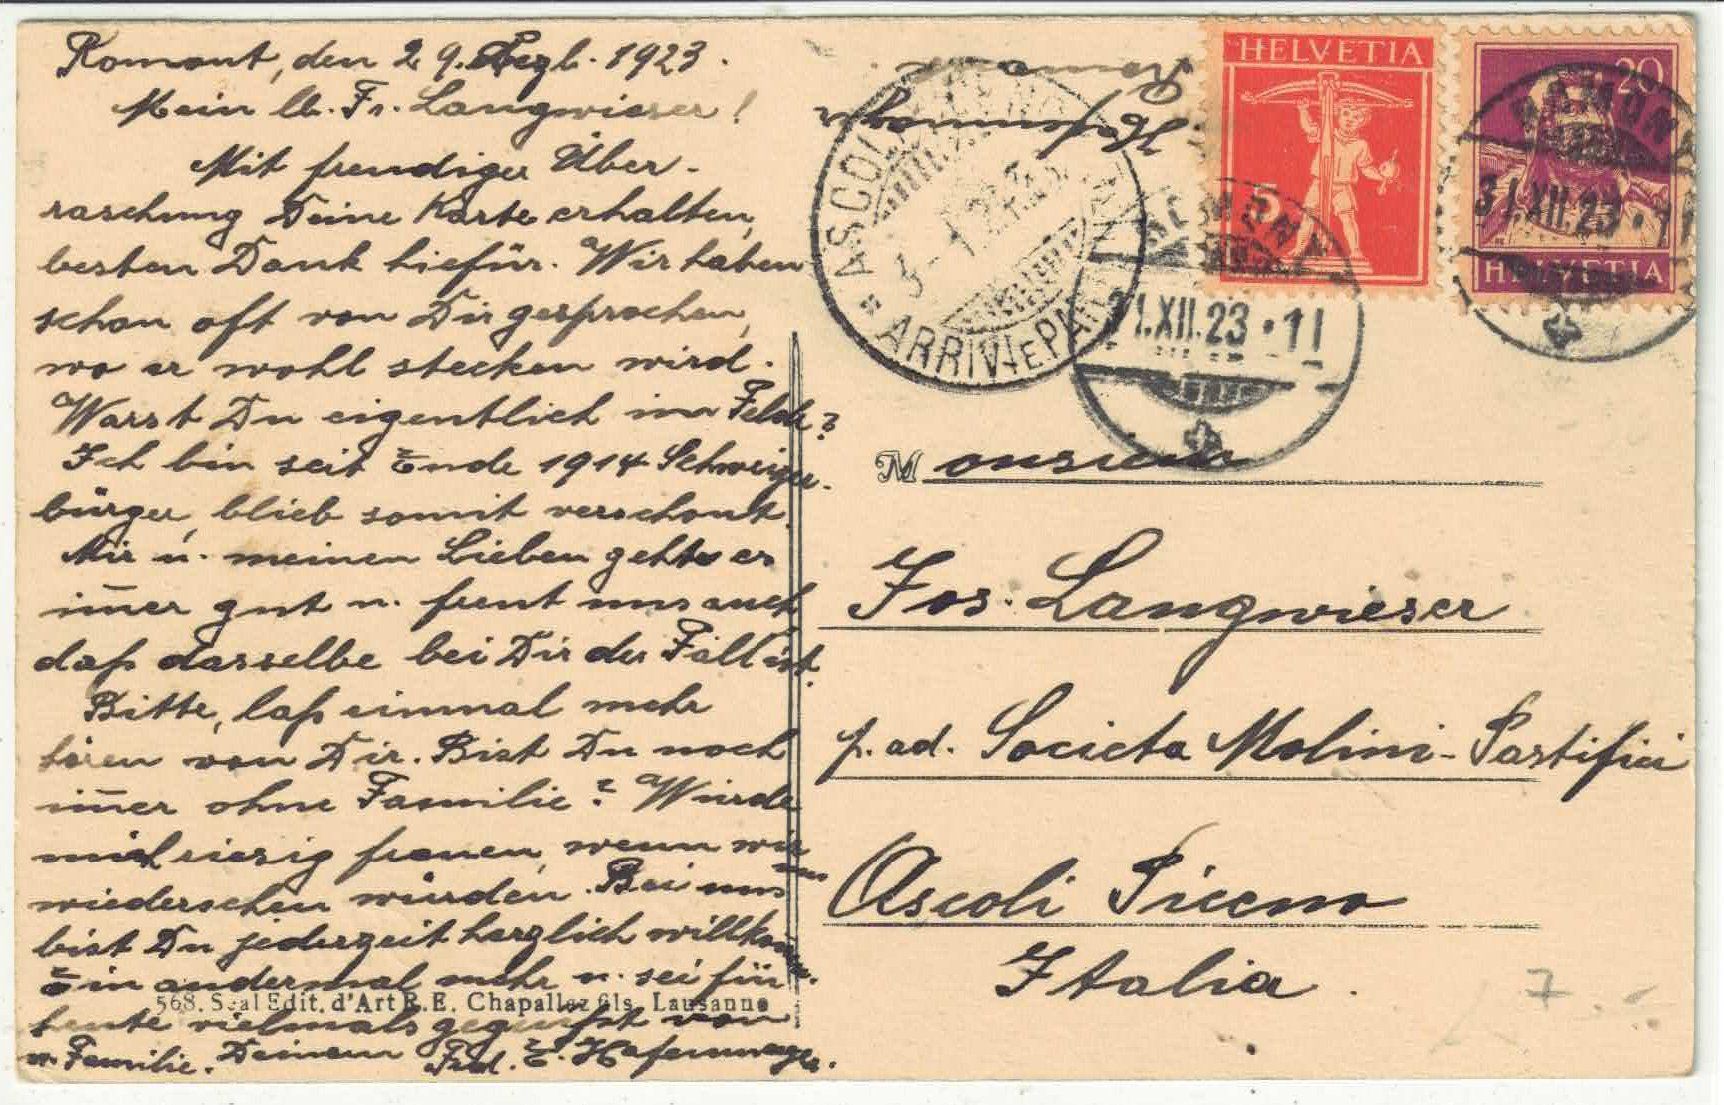 Romont, den 29. Dezb. 1923.
Mein lb. Fr. Langwieser!
Mit freudiger Über-
raschung Deine Karte erhalten,
besten Dank hiefür. Wir haben
schon oft von Dir gesprochen,
wo er wohl stecken wird.
Warst Du eigentlich im Felde?
Ich bin seit Ende 1914 Schweizer-
bürger, blieb somit verschont.
Mir u. meinen Lieben geht es
im̄er gut u. freut uns auch
daß dasselbe bei Dir der Fall ist.
Bitte, laß einmal mehr
hören von Dir. Bist Du noch
im̄er ohne Familie? Würde
mich riesig freuen, wenn wir uns
wiedersehen würden. Bei uns
bist Du jederzeit herzlich willkom̄en.
Ein andermal mehr u. sei für
heute vielmals gegrüßt von
u. Familie. Deinem Frd. E. Hafenmayer.
568. Seal Edit. d'Art R.E. Chapallaz fils- Lausanne
Hafenmayer
Romont
HELVETIA
5
HELVETIA
20
ROMONT
31.XII.23·11
ROMONT
31.XII.23·11
ASCOLI PICENO
3-1.24
ARRIVI E PARTENZE
Monsieur
Jos. Langwieser
p. ad. Societa Molini-Pastifici
Ascoli Piceno
Italia.
7